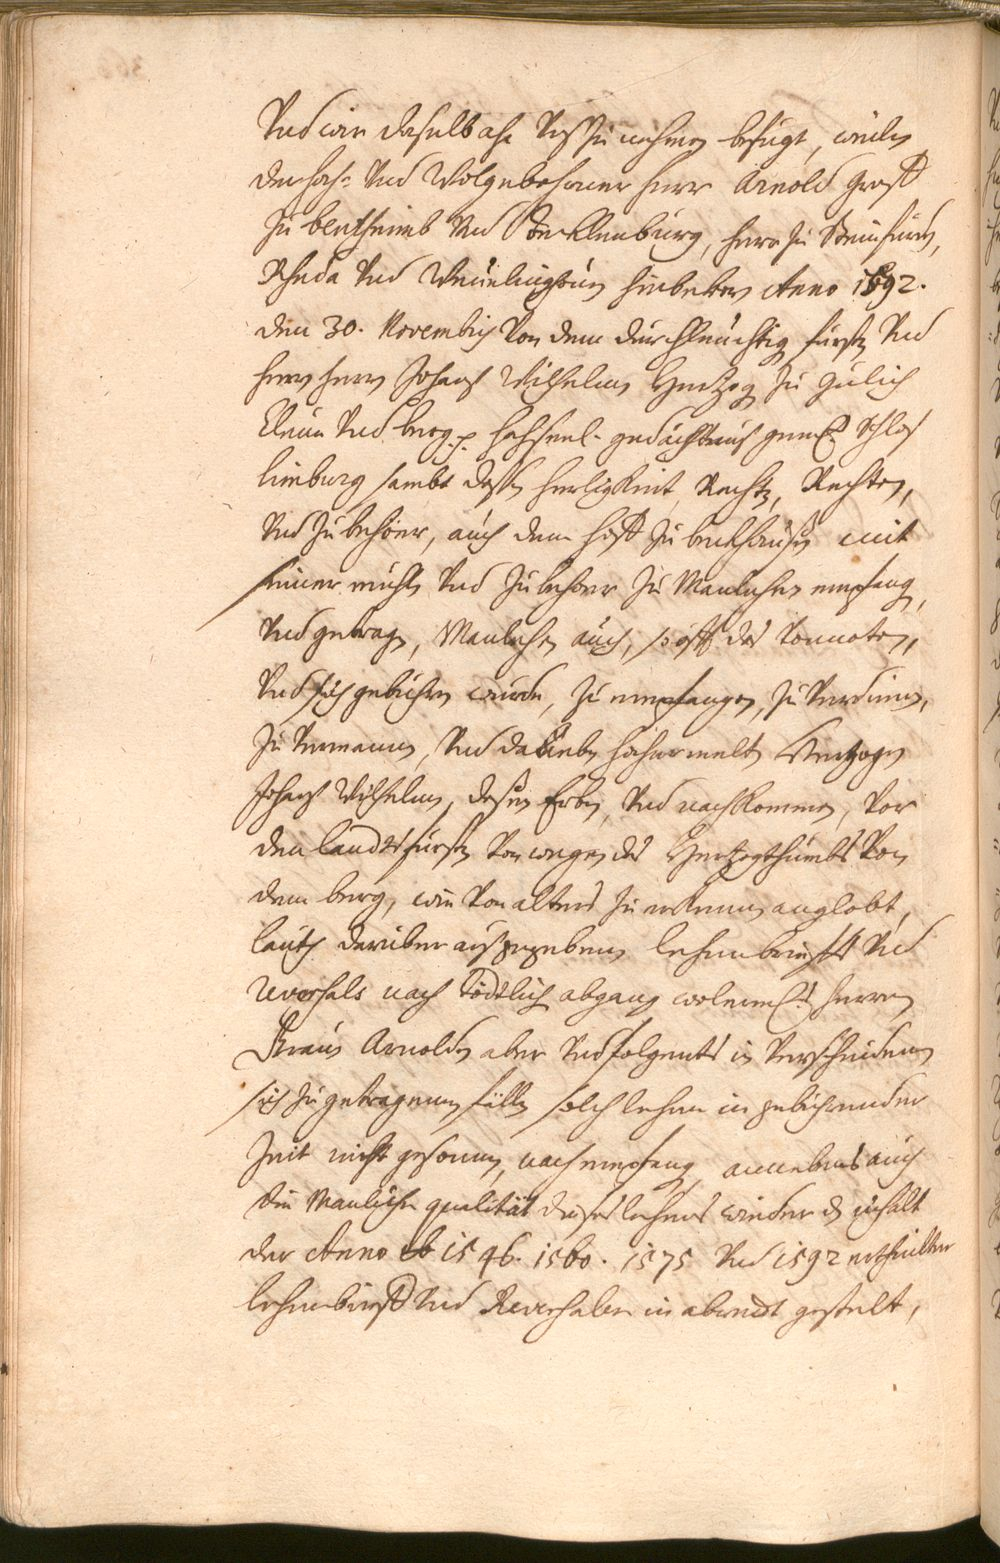 Und wir deßelb ahn Unß zu nehmen befugt, weilen
der hoch= Und Wolgebohrner herr Arnold Graff
zu bentheimb Und Tecklenburg, herr zu Steinfurdt,
Rheda Und Wevelinghoven hiebevor Anno 1592.
den 30. Novembris Von dem durchleuchtig fursten Und
hern hern Johanß Wilhelmen Hertzog zu Gulich
Cleve Und berg p. hochseel. gedächtnus gemelt. Schlos
limburg sambt deßen herligkeit, Recht, Rechten,
Und Zubehoer, auch dem hoff zu berkhausen mit
seiner Und Zubehoer zu Manlehen empfang,
Und getragen, Manlehen auch, so offt des Vonnoten,
Und sich gebühren wurde, zu empfangen, zu Verdienen,
zu Vermannen, Und dabeneben hochermelten Hertzogen
Johanß Wilhelmen, deßen Erben, Und nachkommen, Vor
den landtsfursten Von wegen des Hertzogthumbs Von
dem berg, wie Von alters zu erkennen anglobt,
lauth darüber außgegebenen lehenbrieffs Und
Reversals nach tödtlich abgang wolermelt. herren
Graven Arnolden aber Und folgents in Verscheidenen
sich zugetragenen fällen solch lehen in gebührender
Zeit nicht gesonnen, noch empfang, annebens auch
die Manliche qualität dieses lehens wieder den inhalt
der Anno 1546. 1560. 1575 Und 1592 ertheilten
lehenbrieff Und Reversalen in abredt gestelt,